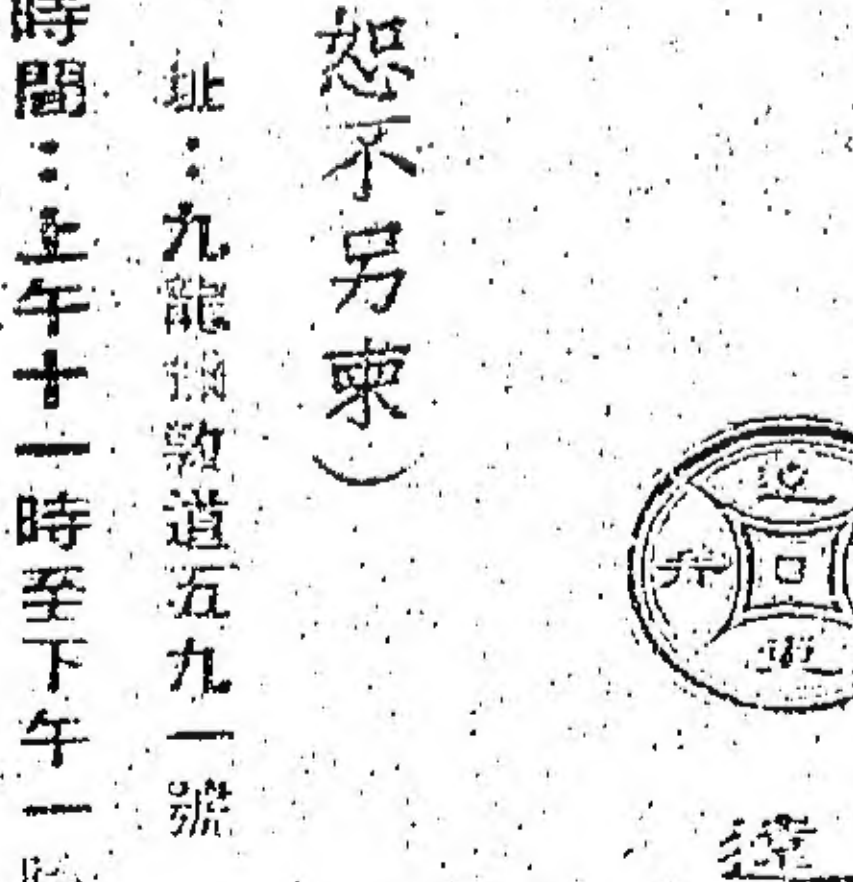 恕不另柬）
址：九龍彌敦道五九一號
時間：上午十一時至下午一時